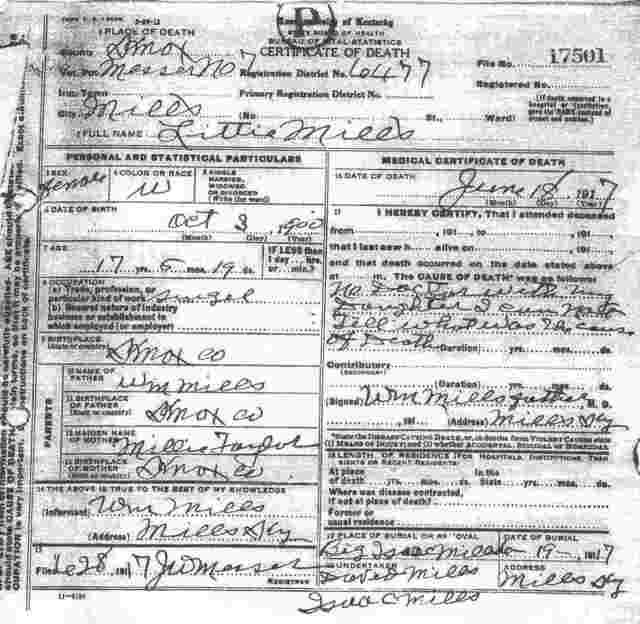 1 PLACE OF DEATH
County Knox
Commonwealth of Kentucky
STATE BOARD OF HEALTH
BUREAU OF VITAL STATISTICS
CERTIFICATE OF DEATH
File No. 17501
Vot. Pct. Messer No 7 Registration District No. 6477
Registered No.
Inc. Town Primary Registration District No.
City Mills (No. St., Ward)
(If death occurred in a hospital or institution give its NAME instead of street and number.)
2 FULL NAME Littie Mills
PERSONAL AND STATISTICAL PARTICULARS
3 SEX female
4 COLOR OR RACE W
5 SINGLE
MARRIED,
WIDOWED
OR DIVORCED
(Write the word)
6 DATE OF BIRTH
Oct 3, 1900
(Month) (Day) (Year)
7 AGE
17 yrs. 5 mos. 19 ds.
IF LESS than
1 day... hrs.
or... min.?
8 OCCUPATION
(a) Trade, profession, or
particular kind of work
(b) General nature of industry
business or establishment in
which employed (or employer)
9 BIRTHPLACE
(State or country) Knox Co
PARENTS
10 NAME OF
FATHER Wm Mills
11 BIRTHPLACE
OF FATHER
(State or country) Knox Co
12 MAIDEN NAME
OF MOTHER Millie Taylor
13 BIRTHPLACE
OF MOTHER
(State or country) Knox Co
14 THE ABOVE IS TRUE TO THE BEST OF MY KNOWLEDGE
(Informant) Wm Mills
(Address) Mills Ky
15
Filed 28, 1917 JW Messer
REGISTRAR
MEDICAL CERTIFICATE OF DEATH
16 DATE OF DEATH
June 18, 1917
(Month) (Day) (Year)
17 I HEREBY CERTIFY, That I attended deceased
from , 191 , to , 191
that I last saw h alive on , 191
and that death occurred on the date stated above
at m. The CAUSE OF DEATH* was as follows
No Doctor with my
Daughter I can not
Tell what was the cause
of Death
(Duration) yrs. mos. ds.
Contributory
(Secondary)
(Duration) yrs. mos. ds.
(Signed) Wm Mills father M. D.
, 191 (Address) Mills Ky
*State the DISEASE CAUSING DEATH, or, in deaths from VIOLENT CAUSES state
(1) MEANS OF INJURY; and (2) whether ACCIDENTAL, SUICIDAL OR HOMICIDAL
18 LENGTH OF RESIDENCE (FOR HOSPITALS, INSTITUTIONS, TRANSIENTS OR RECENT RESIDENTS)
At place In the
of death yrs. mos. ds. State yrs. mos. ds.
Where was disease contracted,
if not at place of death?
Former or
usual residence
19 PLACE OF BURIAL OR REMOVAL
Big Isaac Mills
DATE OF BURIAL
19, 1917
20 UNDERTAKER
David Mills
Isac C Mills
ADDRESS
Mills Ky
11-6184